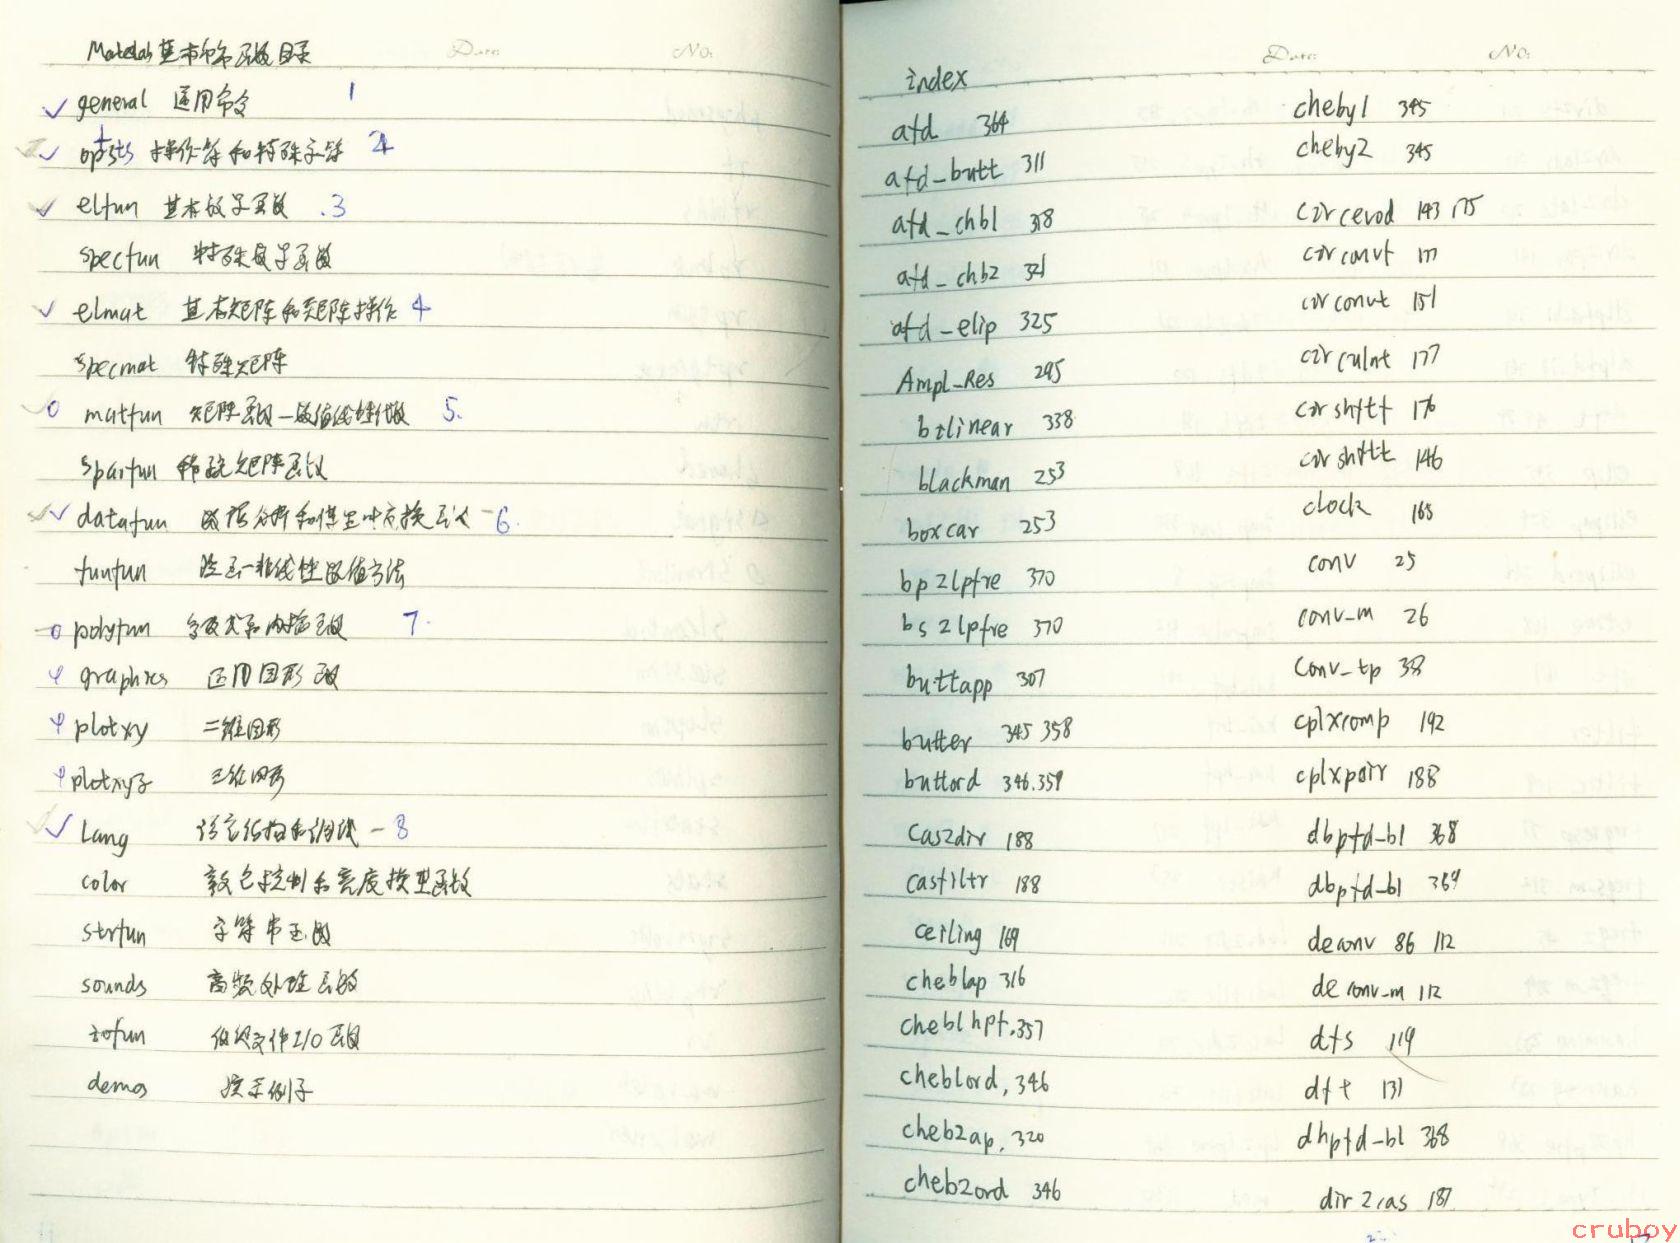 Matlab基本命令函数目录
Date: No:
✓ general 通用命令 1
✓ opsts 操作符和特殊字符 2
✓ elfun 基本数学函数 .3
specfun 特殊数学函数
✓ elmat 基本矩阵和矩阵操作 4
specmat 特殊矩阵
0 matfun 矩阵函数—数值线性代数 5.
sparfun 稀疏矩阵函数
✓ datafun 数据分析和傅里叶变换函数 - 6.
funfun 泛函—非线性数值方法
0 polyfun 多项式和内插函数 7.
φ graphics 通用图形函数
φ plotxy 二维图形
φ plotxyz 三维图形
✓ Lang 语言结构和调试 - 8
color 颜色控制和亮度模型函数
strfun 字符串函数
sounds 高频处理函数
iofun 低级文件I/O函数
demos 演示例子
Date: No:
index
afd 364
afd_butt 311
afd_chb1 318
afd_chb2 321
afd_elip 325
Ampl_Res 295
bilinear 338
blackman 253
boxcar 253
bp2lpfre 370
bs2lpfre 370
buttapp 307
butter 345 358
buttord 346.359
cas2dir 188
casfiltr 188
ceiling 169
cheb1ap 316
cheb1hpf.357
cheb1ord, 346
cheb2ap, 320
cheb2ord 346
cheby1 345
cheby2 345
circevod 143 175
circonvf 177
circonvt 151
circulnt 177
cirshftf 176
cirshftt 146
clock 165
conv 25
conv_m 26
conv_tp 38
cplxcomp 192
cplxpair 188
dbpfd-bl 368
dbpfd-bl 369
deconv 86 112
deconv_m 112
dfs 119
dft 131
dhpfd-bl 368
dir2cas 187
cruboy